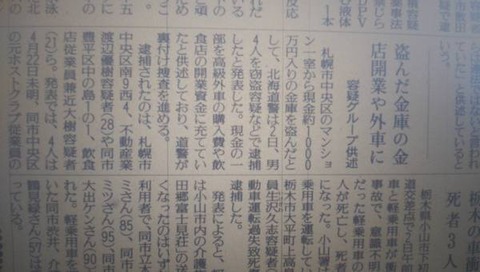 盗んだ金庫の金
店開業や外車に
容疑グループ供述
札幌市中央区のマンショ
ン一室から現金約1000
万円入りの金庫を盗んだと
して、北海道警は2日、男
4人を窃盗容疑などで逮捕
したと発表した。現金の一
部を高級外車の購入費や飲
食店の開業資金に充ててい
たと供述しており、道警が
裏付け捜査を進める。
逮捕されたのは、札幌市
中央区南9西4、不動産業
渡辺優樹容疑者(28)や同市
豊平区中の島一の一、飲食
店従業員兼近大樹容疑者
(21)ら。発表では、4人は
4月22日未明、同市中央区
の元ホストクラブ従業員の
栃木の車衝
死者3人
栃木県小山市下
道交差点で1日午
車と軽乗用車が衝
事故で、意識不明
だった軽乗用車の
人が死亡し、死
になった。小山署は
乗用車を運転して
栃木市大平町上高島
員生沢久志容疑者
動車運転過失致死
逮捕した。
発表によると、軽
は小山市内の介護
田郷富士見荘」の送
くなったのはいず
利用者で、同市立木
ミさん(85)、同市
ミツさん(95)、同
大出ケンさん(90)
れた。軽乗用車を
た同市渋井、介
鶴見緑さん(57)は
っている。